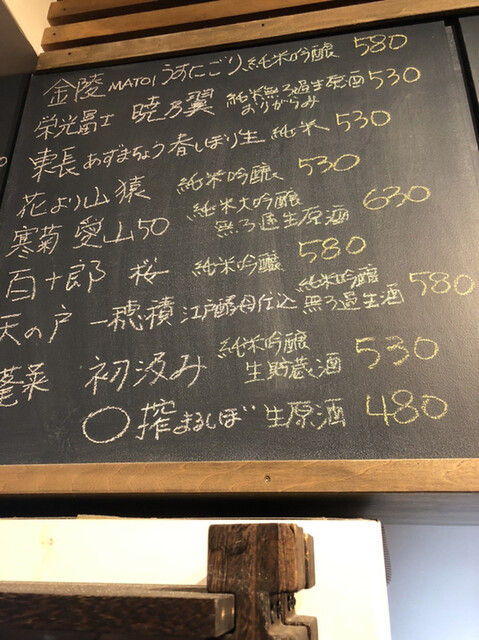 金陵 MATOI うすにごり 純米吟醸 580
栄光冨士 暁乃翼 純米無ろ過生原酒 おりがらみ 530
東長 あずまちょう 春しぼり生 純米 530
花より山猿 純米吟醸 530
寒菊 愛山50 純米大吟醸 無ろ過生原酒 630
百十郎 桜 純米吟醸 580
天の戸 一穂積 江戸酵母仕込 純米吟醸 無ろ過生酒 580
蓬莱 初汲み 純米吟醸 生貯蔵酒 530
〇搾まるしぼ 生原酒 480